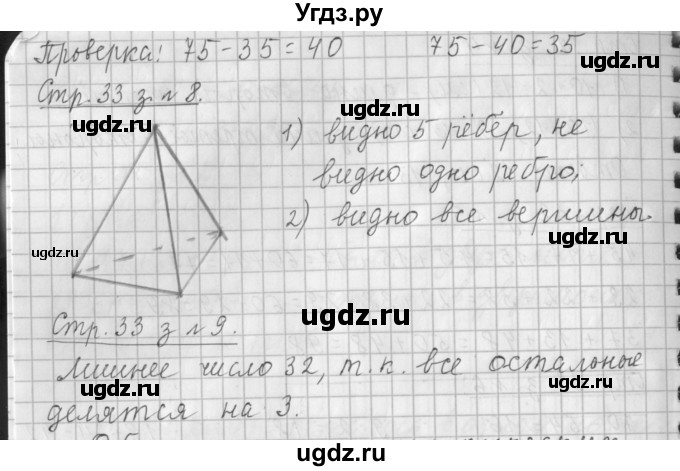 Угдз.ру
Проверка: 75-35=40 75-40=35
Стр. 33 з. №8.
ugdz.ru ugdz.ru
1) видно 5 рёбер, не
видно одно ребро;
ugdz.ru ugdz.ru
2) видно все вершины.
ugdz.ru
ugdz.ru
Стр. 33 з №9.
ugdz.ru
Лишнее число 32, т.к. все остальные
ugdz.ru ugdz.ru
делятся на 3.
ugdz.ru